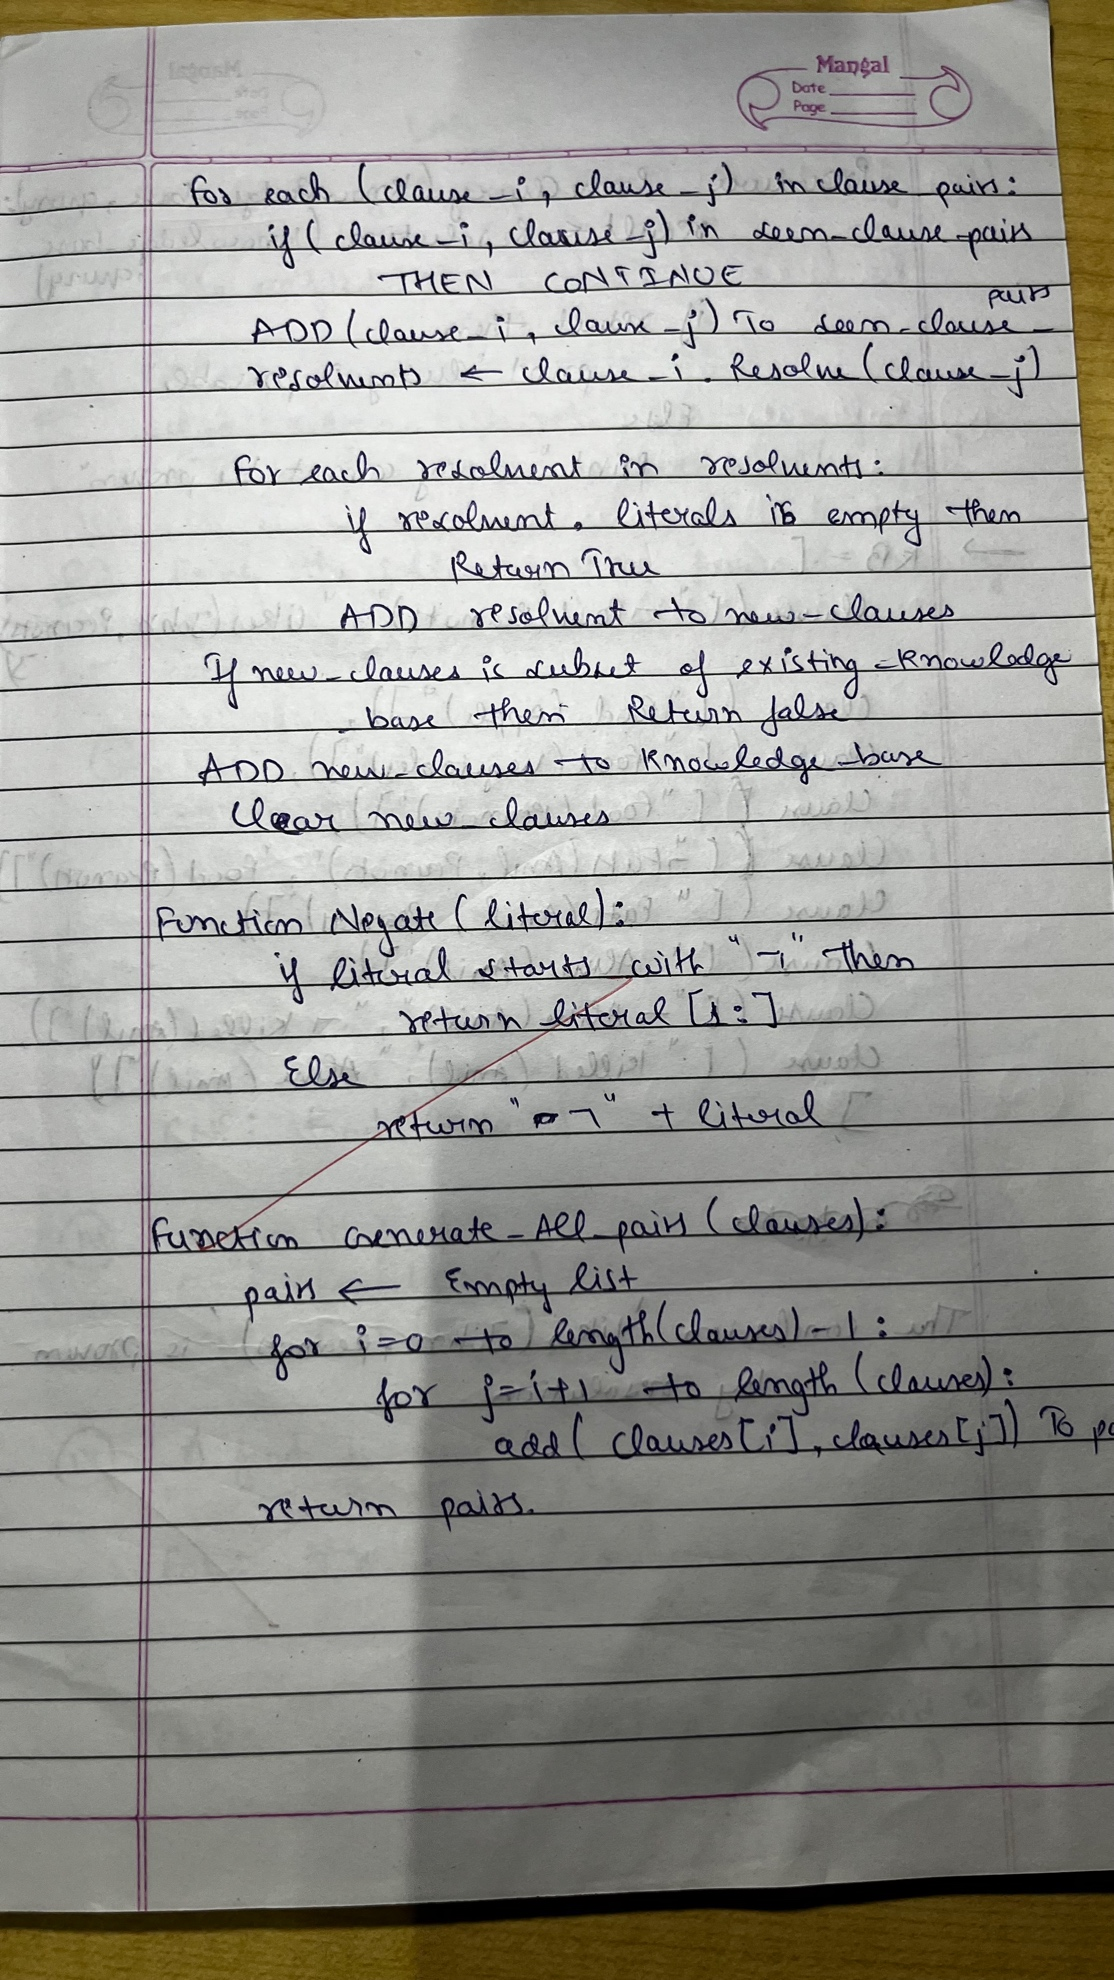 Mangal
Date
Page
for each (clause-i, clause-j) in clause pairs:
if (clause-i, clause-j) in seen-clause-pairs
THEN CONTINUE
pairs
ADD (clause-i, clause-j) To seen-clause-
resolvents ← clause-i. Resolve (clause-j)
for each resolvent in resolvents:
if resolvent. literals is empty then
Return True
ADD resolvent to new-clauses
If new-clauses is subset of existing-knowledge
base then Return false
ADD new-clauses to Knowledge-base
Clear new-clauses
Function Negate (literal):
if literal starts with "¬" then
return literal [1:]
Else
return "¬" + literal
Function Generate-All-pairs (clauses):
pairs ← Empty list
for i=0 to length(clauses)-1:
for j=i+1 to length (clauses):
add( clauses[i], clauses[j]) To pa
return pairs.